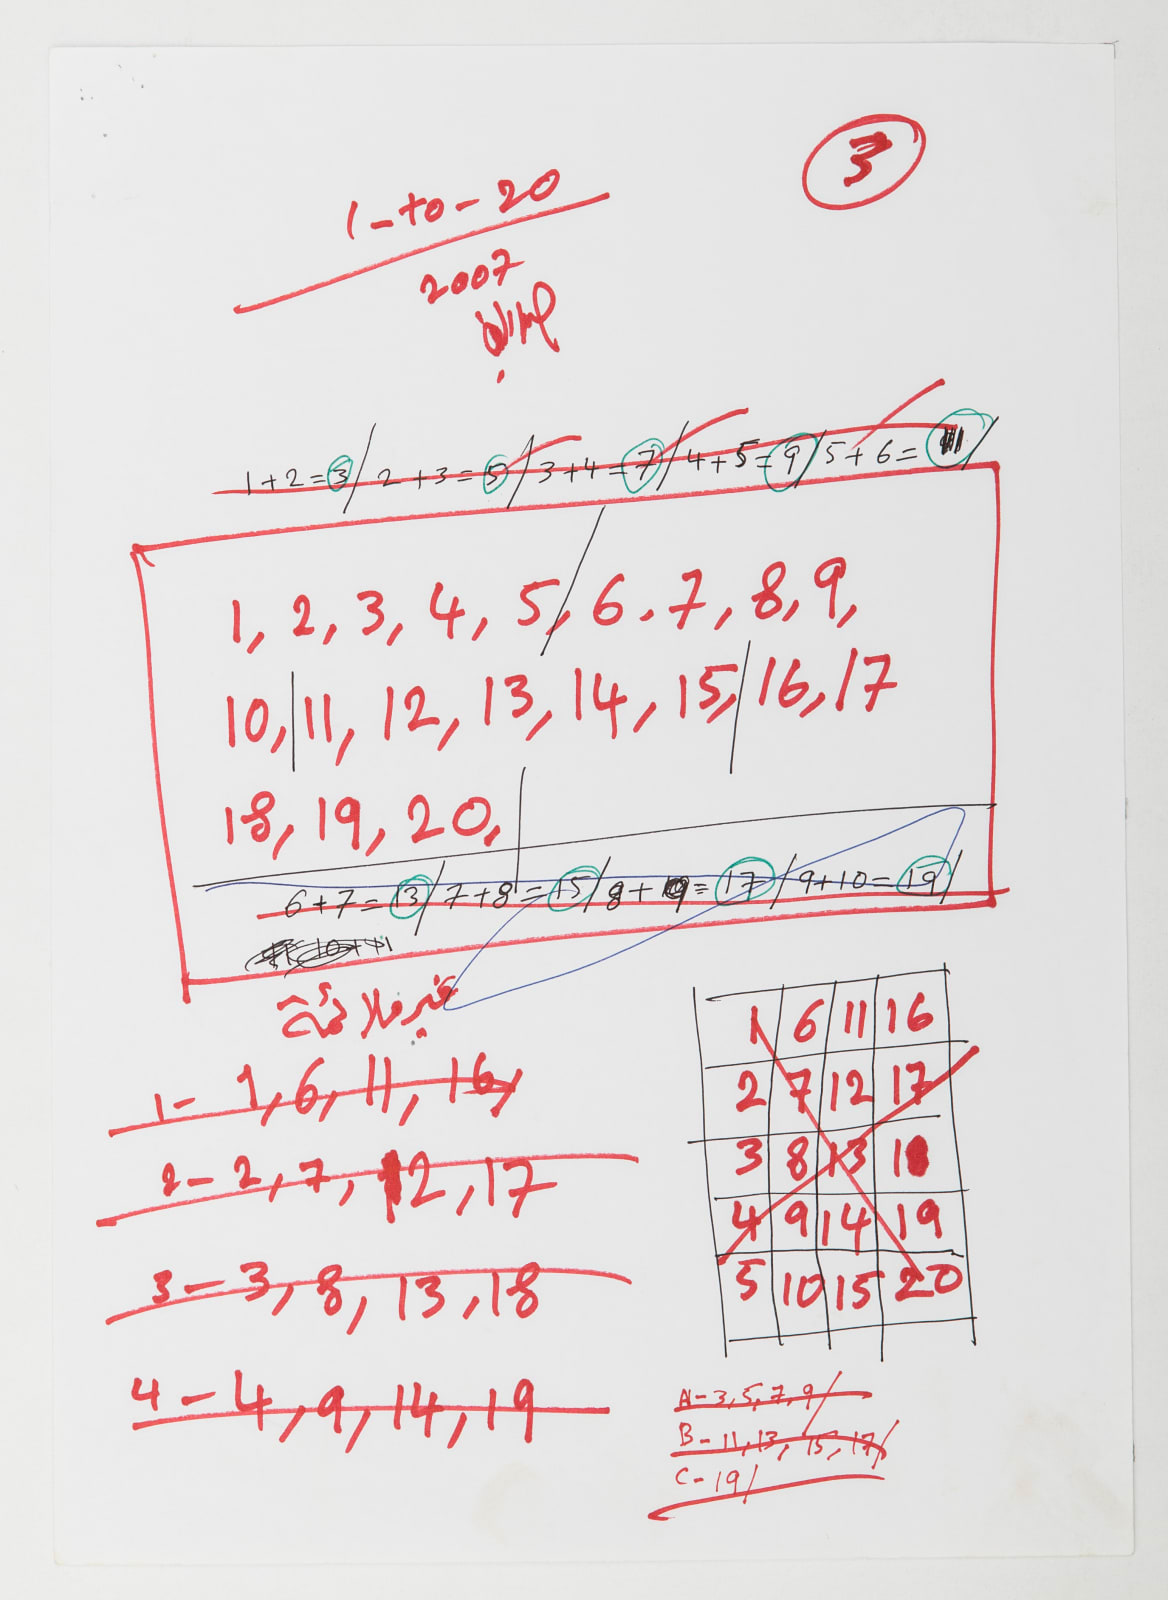 3
1-to-20
2007
1+2=3/ 2+3=5/ 3+4=7/ 4+5=9/ 5+6=11/
1, 2, 3, 4, 5/, 6. 7, 8, 9,
10, 11, 12, 13, 14, 15, 16, 17
18, 19, 20,
6+7=13/ 7+8=15/ 8+9=17/ 9+10=19/
غير ملائمة
1- 1, 6, 11, 16,
2- 2, 7, 12, 17
3- 3, 8, 13, 18
4- 4, 9, 14, 19
1 6 11 16
2 7 12 17
3 8 13 18
4 9 14 19
5 10 15 20
A- 3, 5, 7, 9/
B- 11, 13, 15, 17/
C- 19/